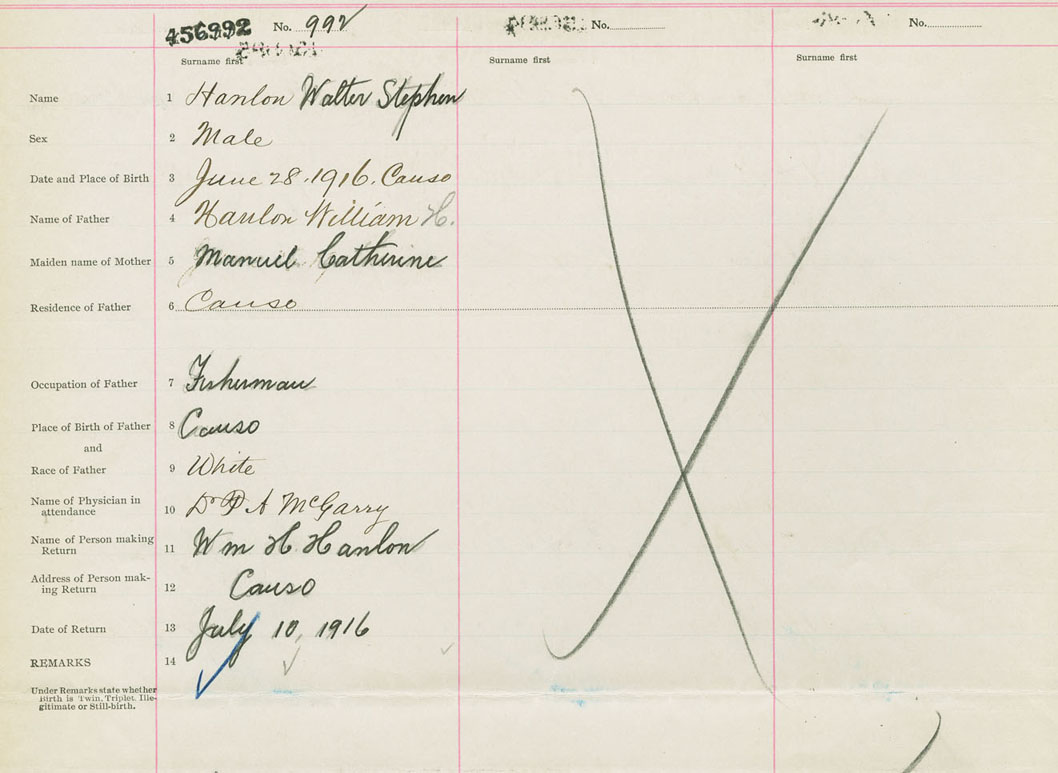 456992 No. 992 No. No.
Surname first Surname first Surname first
Name 1 Hanlon Walter Stephen
Sex 2 Male
Date and Place of Birth 3 June 28. 1916. Canso
Name of Father 4 Hanlon William H.
Maiden name of Mother 5 Manuel Catherine
Residence of Father 6 Canso
Occupation of Father 7 Fisherman
Place of Birth of Father 8 Canso
and
Race of Father 9 White
Name of Physician in
attendance 10 Dr P A McGarry
Name of Person making
Return 11 Wm H Hanlon
Address of Person mak-
ing Return 12 Canso
Date of Return 13 July 10, 1916
REMARKS 14
Under Remarks state whether
Birth is Twin, Triplet, Ille-
gitimate or Still-birth.